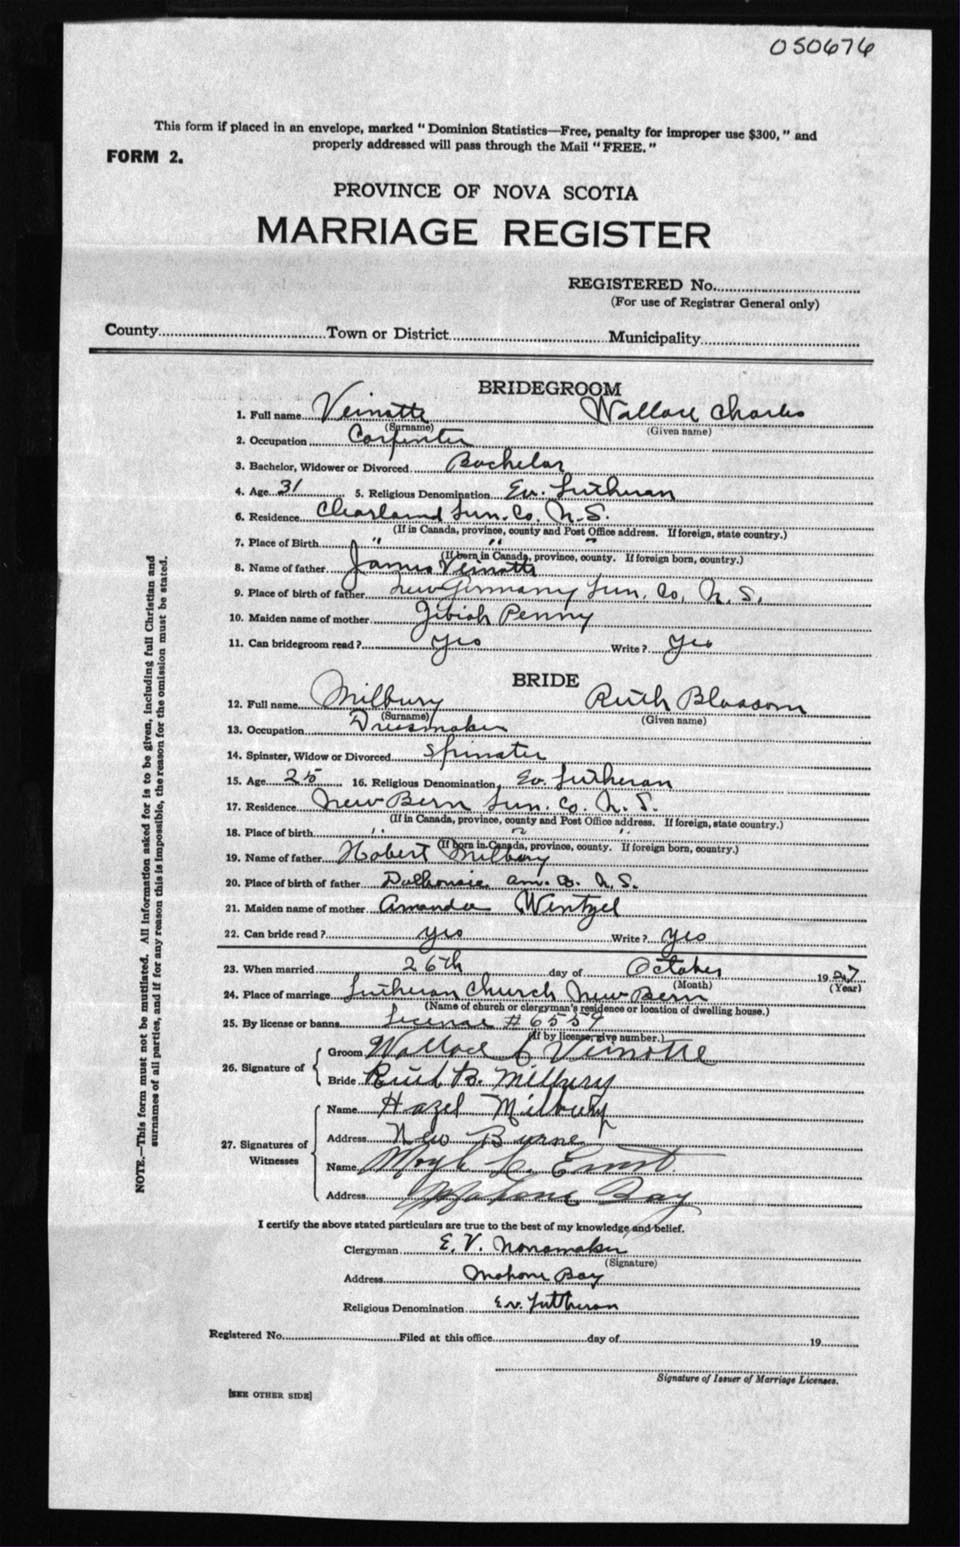 050676
This form if placed in an envelope, marked "Dominion Statistics—Free, penalty for improper use $300," and
properly addressed will pass through the Mail "FREE."
FORM 2.
PROVINCE OF NOVA SCOTIA
MARRIAGE REGISTER
REGISTERED No.
(For use of Registrar General only)
County Town or District Municipality
BRIDEGROOM
1. Full name Veinotte Wallace Charles
(Surname) (Given name)
2. Occupation Carpenter
3. Bachelor, Widower or Divorced Bachelor
4. Age 31 5. Religious Denomination Ev. Lutheran
6. Residence Clearland Lun. Co. N.S.
(If in Canada, province, county and Post Office address. If foreign, state country.)
7. Place of Birth " " "
(If born in Canada, province, county. If foreign born, country.)
8. Name of father James Veinotte
9. Place of birth of father New Germany Lun. Co. N. S.
10. Maiden name of mother Zibiah Penny
11. Can bridegroom read? yes Write? yes
BRIDE
12. Full name Milbury Ruth Blossom
(Surname) (Given name)
13. Occupation Dressmaker
14. Spinster, Widow or Divorced Spinster
15. Age 25 16. Religious Denomination Ev. Lutheran
17. Residence New Bern Lun. Co. N. S.
(If in Canada, province, county and Post Office address. If foreign, state country.)
18. Place of birth " " "
(If born in Canada, province, county. If foreign born, country.)
19. Name of father Hobert Milbury
20. Place of birth of father Dalhousie Ann. Co. N. S.
21. Maiden name of mother Amanda Wentzel
22. Can bride read? yes Write? yes
23. When married 26th day of October 1927
(Month) (Year)
24. Place of marriage Lutheran Church New Bern
(Name of church or clergyman's residence or location of dwelling house.)
25. By license or banns License # 6554
(If by license, give number.)
26. Signature of
Groom Wallace C Veinotte
Bridge Ruth B. Milbury
27. Signatures of Witnesses
Name Hazel Milbury
Address New Byrne
Name C. Ernst
Address Mahone Bay
I certify the above stated particulars are true to the best of my knowledge and belief.
Clergyman E. V. Nonamaker
(Signature)
Address Mahone Bay
Religious Denomination Ev. Lutheran
Registered No. Filed at this office day of 19
Signature of Issuer of Marriage Licenses.
[SEE OTHER SIDE]
NOTE.—This form must not be mutilated. All information asked for is to be given, including full Christian and
surnames of all parties, and if for any reason this is impossible, the reason for the omission must be stated.